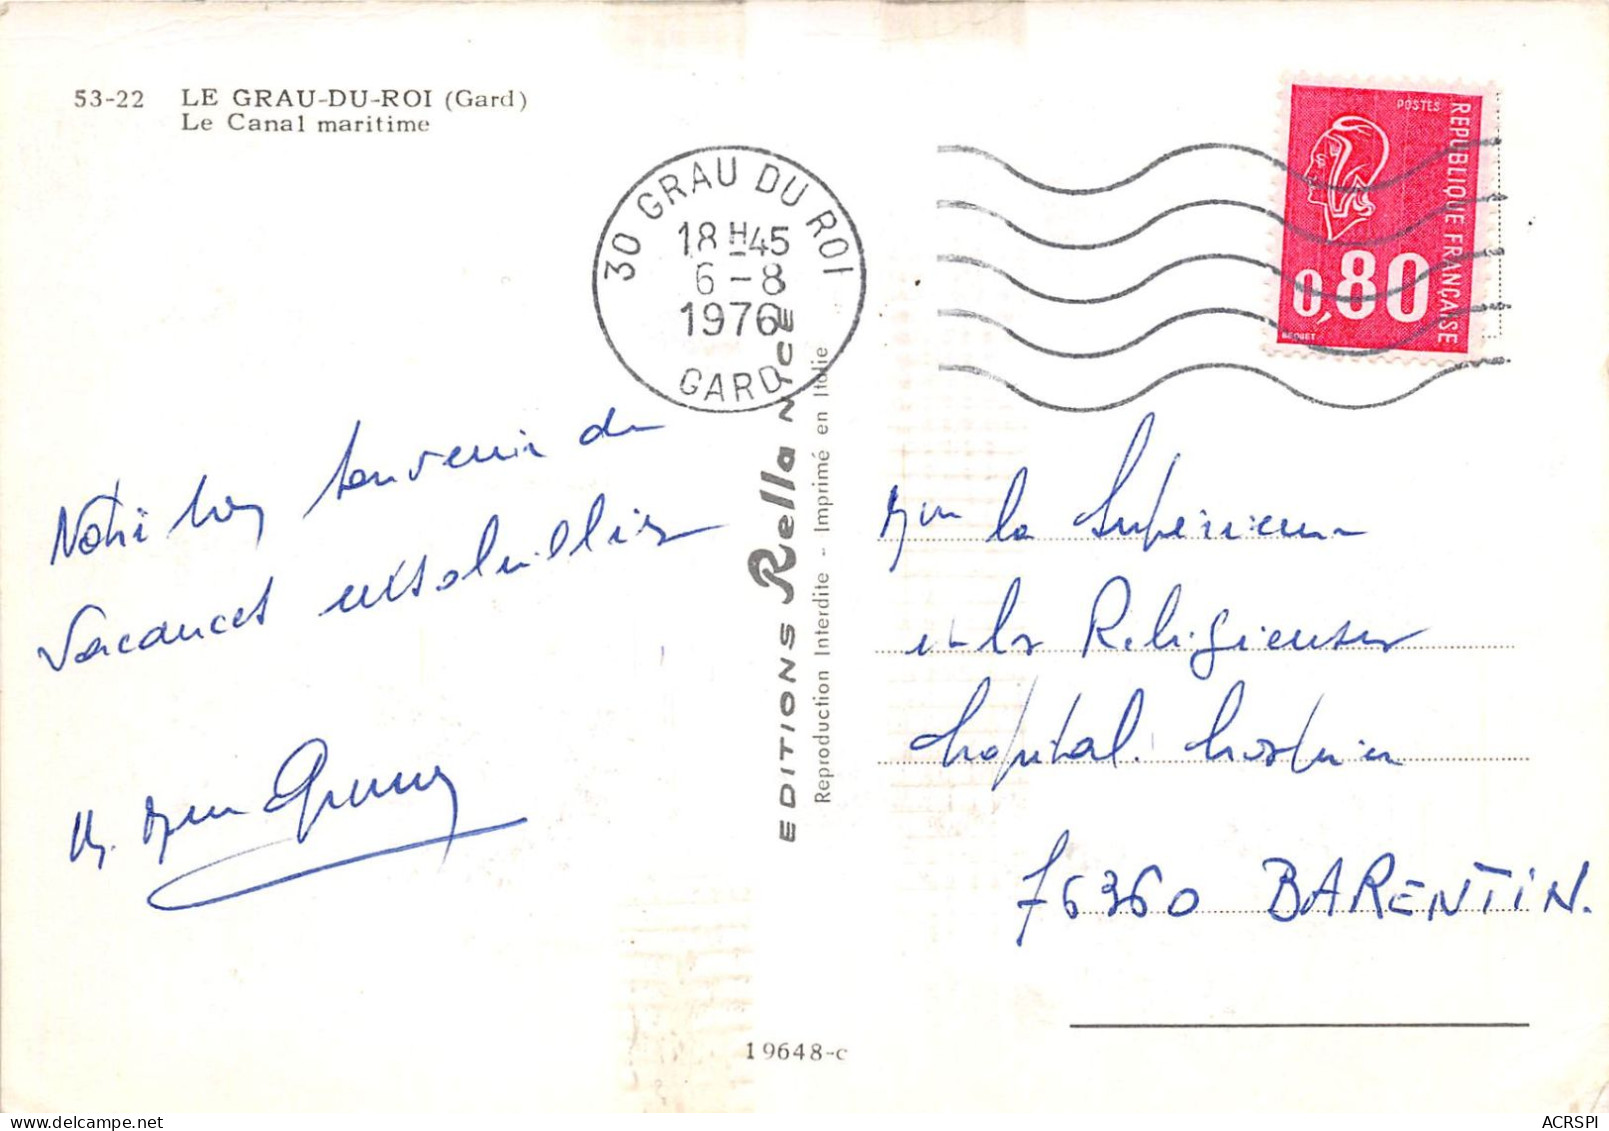 53-22 LE GRAU-DU-ROI (Gard)
Le Canal maritime
30 GRAU DU ROI
18 H 45
6 - 8
1976
GARD
POSTES
REPUBLIQUE FRANÇAISE
0,80
BEQUET
Notre bon souvenir de
vacances ensoleillées
M. Mme
EDITIONS Rella NICE
Reproduction Interdite - Imprimé en Italie
Mme la Supérieure
et les Religieuses
hopital hospice
76360 BARENTIN.
19648-c
ACRSPI